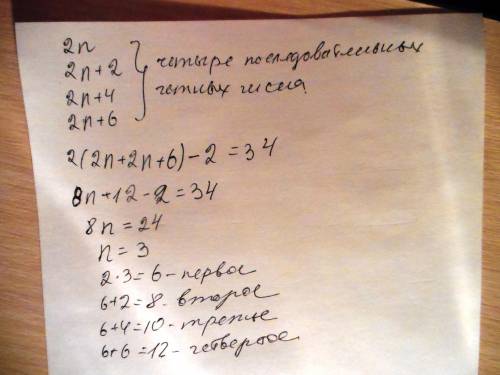 2n
2n+2 четыре последовательных
2n+4 четных числа
2n+6
2(2n+2n+6)-2=34
8n+12-2=34
8n=24
n=3
2·3=6-первое
6+2=8-второе
6+4=10-третье
6+6=12-четвертое